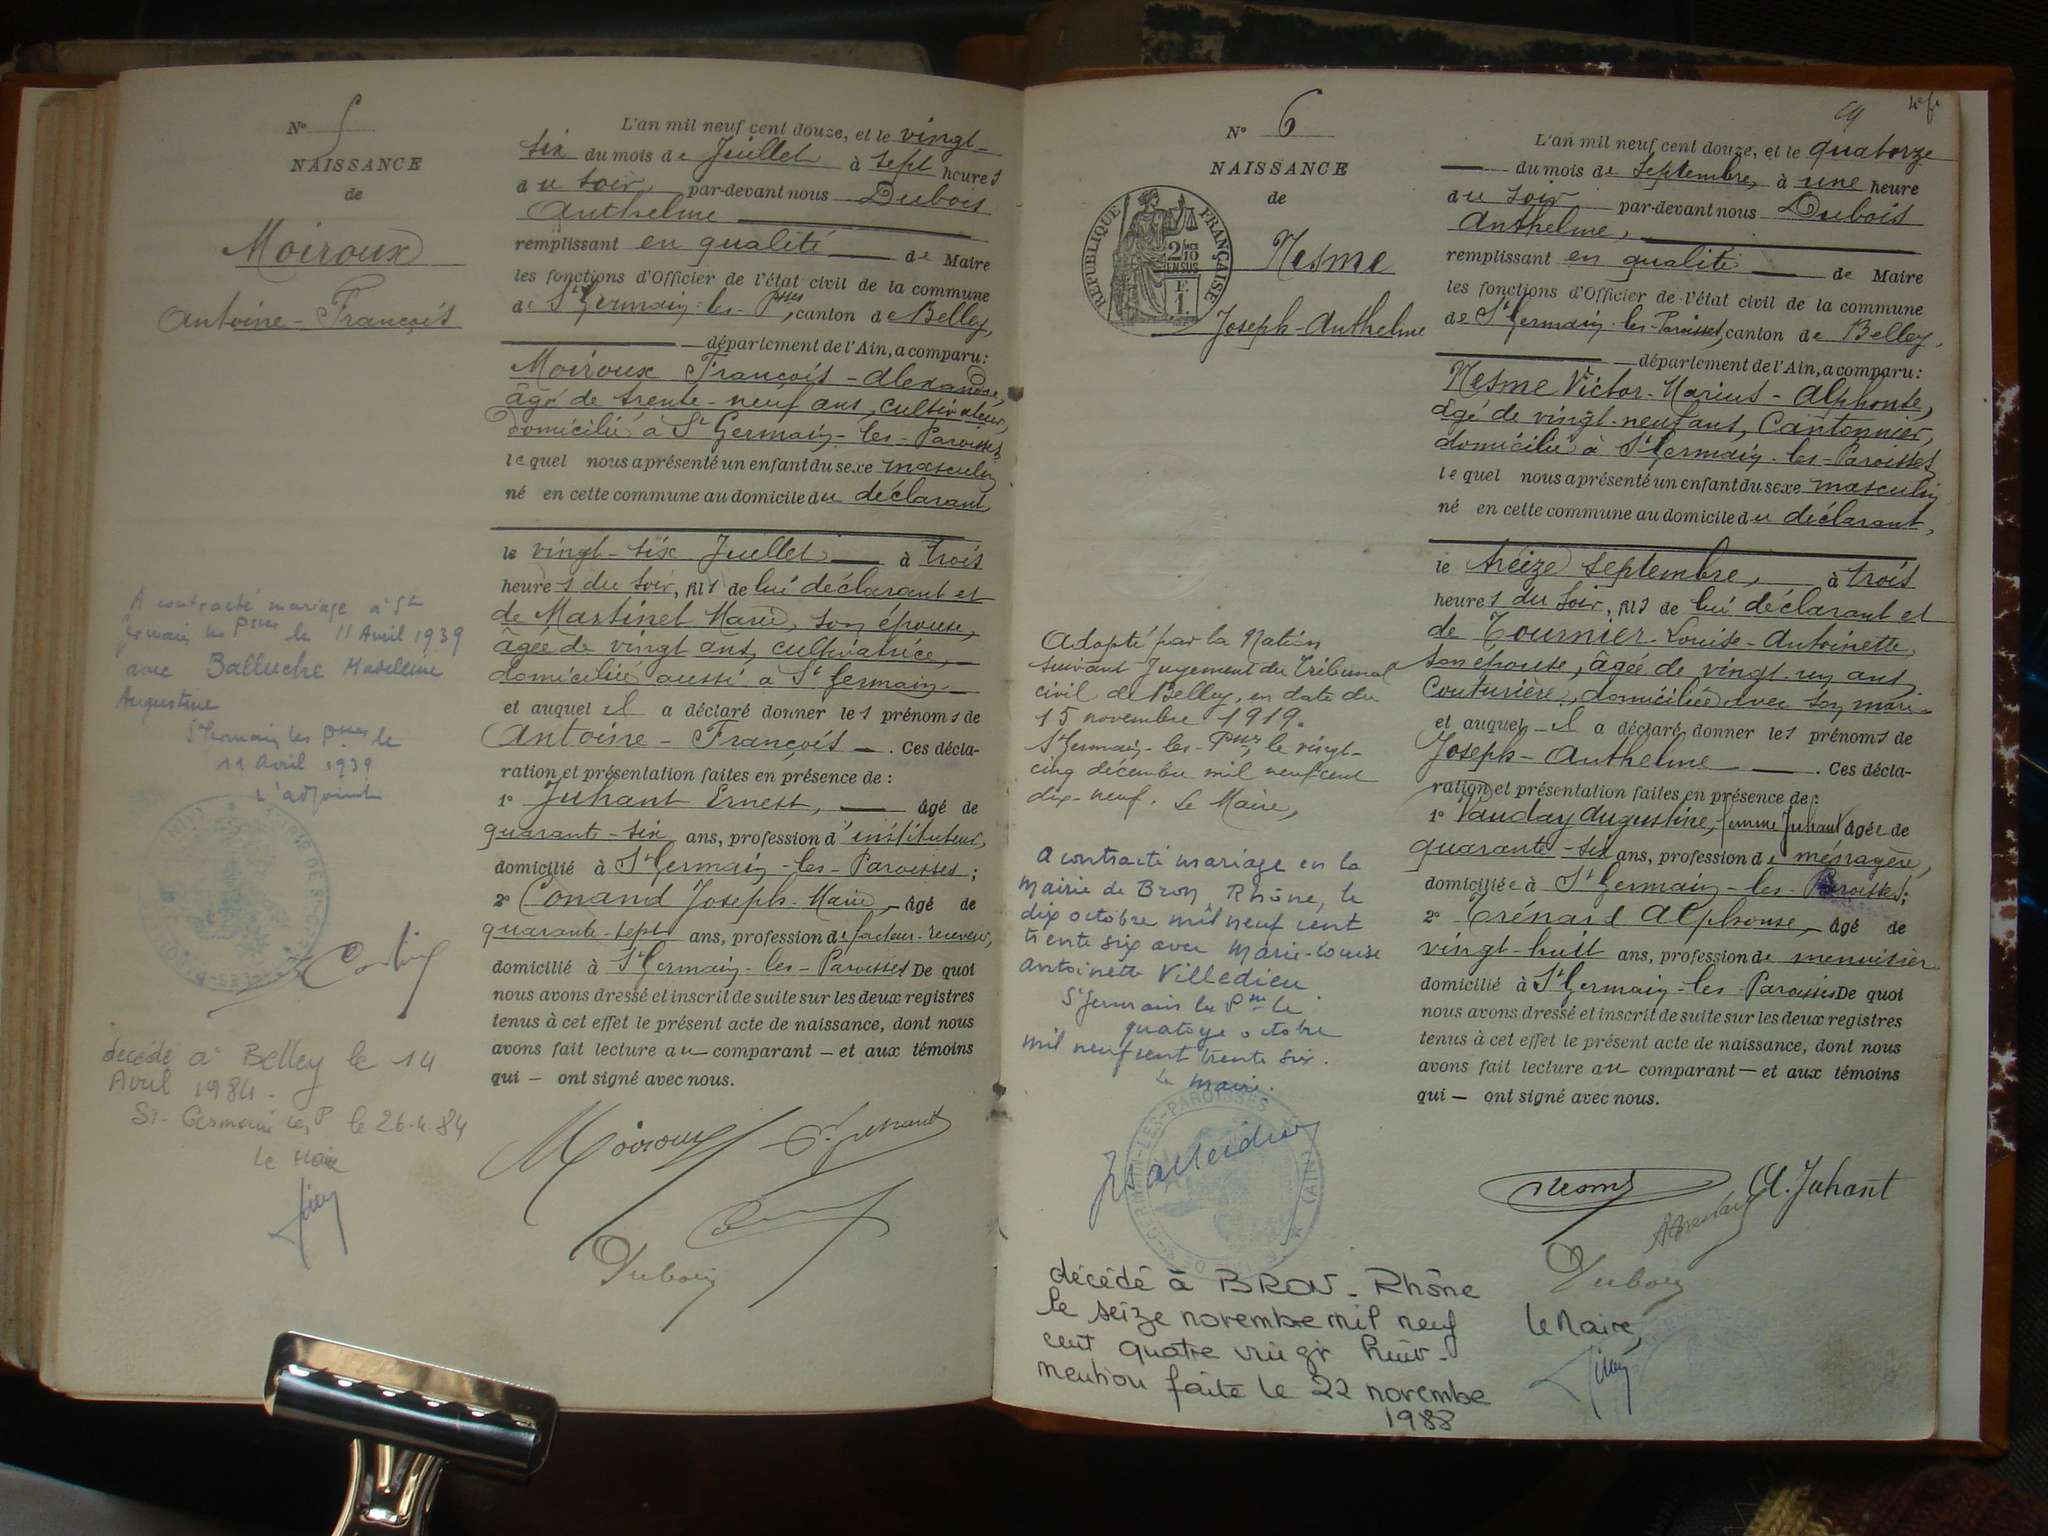 N° 5
NAISSANCE
de
Moiroux
Antoine-François
A contracté mariage à St
Germain les Psses le 11 Avril 1939
avec Balluche Madeleine
Augustine
St Germain les Psses le
11 Avril 1939
L'adjoint
décédé à Belley le 14
Avril 1984.
St-Germain les P le 26-4-84
Le Maire
L'an mil neuf cent douze, et le vingt-
six du mois de Juillet à sept heures
du soir par-devant nous Dubois
Anthelme
remplissant en qualité de Maire
les fonctions d'Officier de l'état civil de la commune
de St Germain-les-Psses, canton de Belley,
département de l'Ain, a comparu:
Moiroux François-Alexandre,
âgé de trente-neuf ans, cultivateur,
domicilié à St Germain-les-Paroisses
lequel nous a présenté un enfant du sexe masculin
né en cette commune au domicile du déclarant
le vingt-six Juillet à trois
heures du soir, fils de lui déclarant et
de Martinet Marie, son épouse,
âgée de vingt ans, cultivatrice,
domiciliée aussi à St Germain
et auquel il a déclaré donner les prénoms de
Antoine-François. Ces décla-
ration et présentation faites en présence de :
1° Juhant Ernest, âgé de
quarante-six ans, profession d'instituteur,
domicilié à St Germain-les-Paroisses;
2° Conand Joseph-Marie, âgé de
quarante-sept ans, profession de facteur-receveur,
domicilié à St Germain-les-Paroisses De quoi
nous avons dressé et inscrit de suite sur les deux registres
tenus à cet effet le présent acte de naissance, dont nous
avons fait lecture au comparant — et aux témoins
qui — ont signé avec nous.
Moiroux E. Juhant
Dubois
N° 6
NAISSANCE
de
RÉPUBLIQUE FRANÇAISE
2/10
EN SUS
Nesme
Joseph-Anthelme
Adopté par la Nation
suivant Jugement du Tribunal
civil de Belley, en date du
15 novembre 1919.
St Germain-les-Psses, le vingt-
cinq décembre mil neuf cent
dix-neuf. Le Maire,
A contracté mariage en la
Mairie de Bron, Rhône, le
dix octobre mil neuf cent
trente six avec Marie-Louise
Antoinette Villedieu
St Germain les Psses le
quatorze octobre
mil neuf cent trente six.
Le Maire.
décédé à BRON - Rhône
le seize novembre mil neuf
cent quatre vingt huit-
mention faite le 22 novembre
1988
4e fe
L'an mil neuf cent douze, et le quatorze
du mois de Septembre, à une heure
du soir par-devant nous Dubois
Anthelme,
remplissant en qualité de Maire
les fonctions d'Officier de l'état civil de la commune
de St Germain-les-Paroisses, canton de Belley,
département de l'Ain, a comparu:
Nesme Victor-Marius-Alphonse,
âgé de vingt-neuf ans, Cantonnier,
domicilié à St Germain-les-Paroisses
lequel nous a présenté un enfant du sexe masculin
né en cette commune au domicile du déclarant,
le treize septembre, à trois
heures du soir, fils de lui déclarant et
de Tournier Louise-Antoinette,
son épouse, âgée de vingt-un ans,
Couturière, domiciliée avec son mari
et auquel il a déclaré donner les prénoms de
Joseph-Anthelme. Ces décla-
ration et présentation faites en présence de :
1° Vauday Augustine, femme Juhant âgée de
quarante-six ans, profession de ménagère,
domiciliée à St Germain-les-Paroisses;
2° Trénard Alphonse, âgé de
vingt-huit ans, profession de menuisier
domicilié à St Germain-les-Paroisses De quoi
nous avons dressé et inscrit de suite sur les deux registres
tenus à cet effet le présent acte de naissance, dont nous
avons fait lecture au comparant — et aux témoins
qui — ont signé avec nous.
Nesme A. Juhant
A. Trénard
Dubois
le Maire,